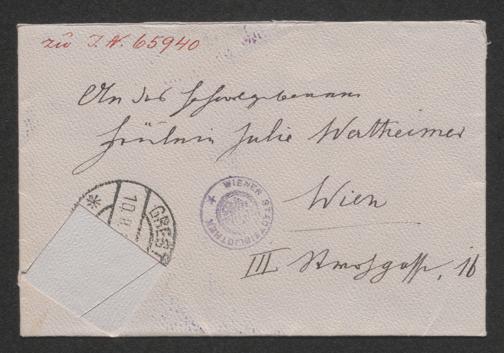 zu I.N. 65940
An das Hochwohlgeborene
Fräulein Julie Wertheimer
Wien
III Strohgasse 16
WIENER STADTBIBLIOTHEK
GREST
10.II